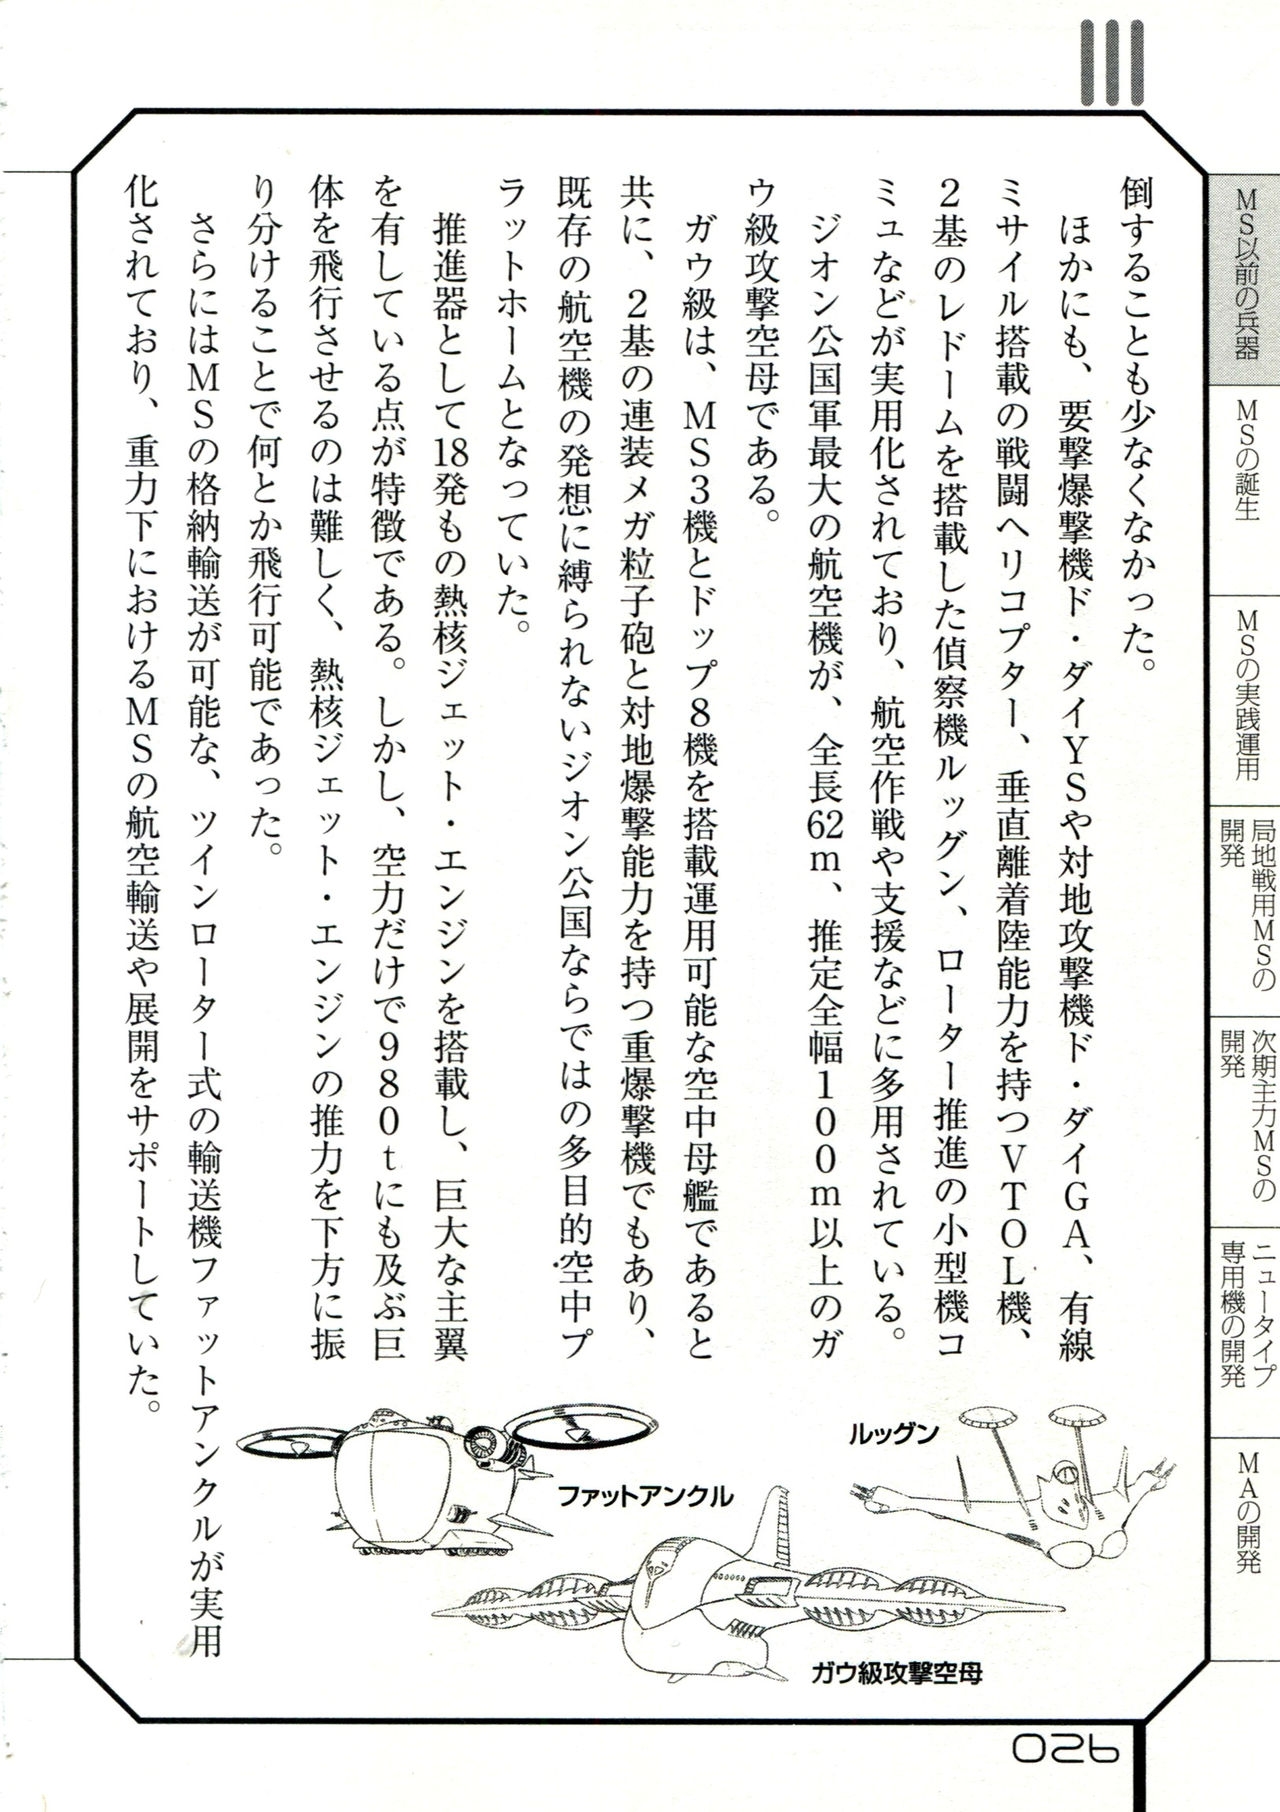 倒することも少なくなかった。
ほかにも、要撃爆撃機ド・ダイYSや対地攻撃機ド・ダイGA、有線
ミサイル搭載の戦闘ヘリコプター、垂直離着陸能力を持つVTOL機、
2基のレドームを搭載した偵察機ルッグン、ローター推進の小型機コ
ミュなどが実用化されており、航空作戦や支援などに多用されている。
ジオン公国軍最大の航空機が、全長62m、推定全幅100m以上のガ
ウ級攻撃空母である。
ガウ級は、MS3機とドップ8機を搭載運用可能な空中母艦であると
共に、2基の連装メガ粒子砲と対地爆撃能力を持つ重爆撃機でもあり、
既存の航空機の発想に縛られないジオン公国ならではの多目的空中プ
ラットホームとなっていた。
推進器として18発もの熱核ジェット・エンジンを搭載し、巨大な主翼
を有している点が特徴である。しかし、空力だけで980tにも及ぶ巨
体を飛行させるのは難しく、熱核ジェット・エンジンの推力を下方に振
り分けることで何とか飛行可能であった。
さらにはMSの格納輸送が可能な、ツインローター式の輸送機ファットアンクルが実用
化されており、重力下におけるMSの航空輸送や展開をサポートしていた。
ルッグン
ファットアンクル
ガウ級攻撃空母
MS以前の兵器
MSの誕生
MSの実践運用
局地戦用MSの
開発
次期主力MSの
開発
ニュータイプ
専用機の開発
MAの開発
026